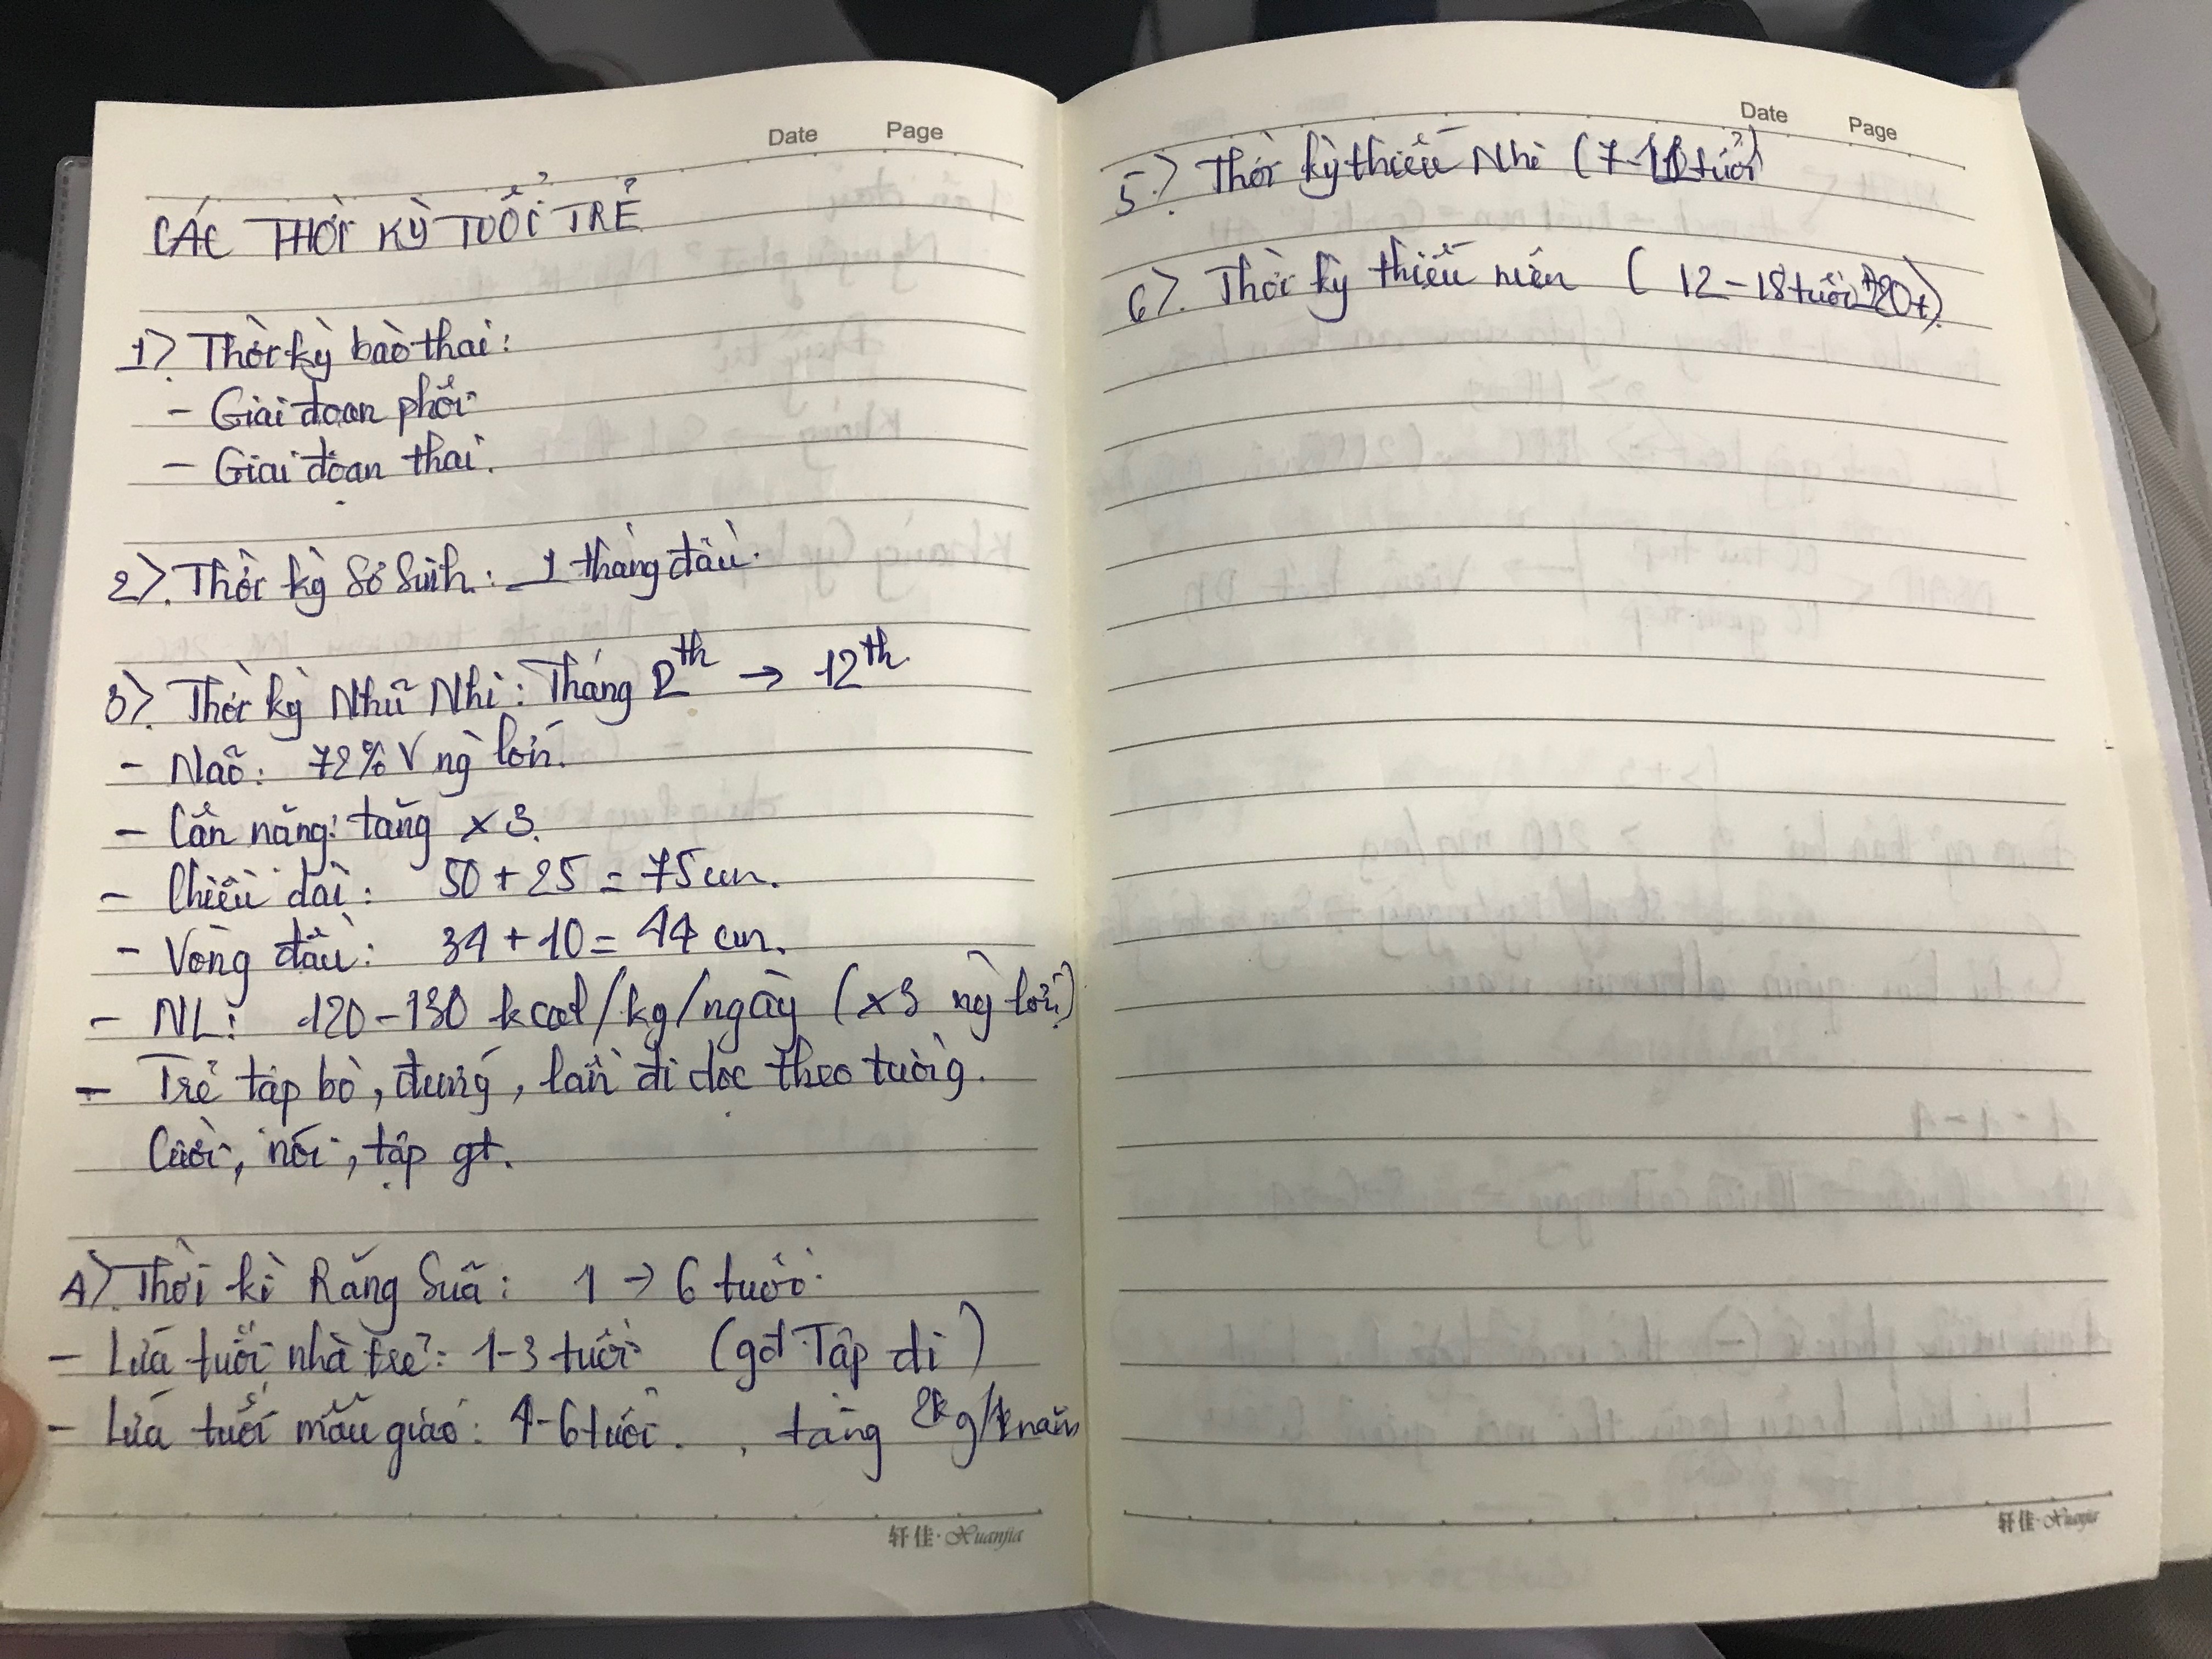 Date Page
CÁC THỜI KỲ TUỔI TRẺ
1> Thời kỳ bào thai:
- Giai đoạn phôi
- Giai đoạn thai.
2>. Thời kỳ Sơ Sinh: 1 tháng đầu.
3>. Thời kỳ Nhũ Nhi: Tháng 2th → 12th.
- Não: 72% V ng lớn.
- Cân nặng: tăng x 3.
- Chiều dài: 50 + 25 = 75 cm.
- Vòng đầu: 34 + 10 = 44 cm.
- NL: 120 - 130 kcal/kg/ngày (x3 ng lớn)
- Trẻ tập bò, đứng, lần đi dọc theo tường.
Cười, nói, tập gt.
4>. Thời kì Răng Sữa: 1 → 6 tuổi
- Lứa tuổi nhà trẻ: 1-3 tuổi (gđ Tập đi)
- Lứa tuổi mẫu giáo: 4-6 tuổi. , tăng 2kg/năm
轩佳·Xuanjia
Date Page
5> Thời kỳ thiếu Nhi (7- tuổi)
6>. Thời kỳ thiếu niên ( 12-18 tuổi 20t).
轩佳·Xuanjia